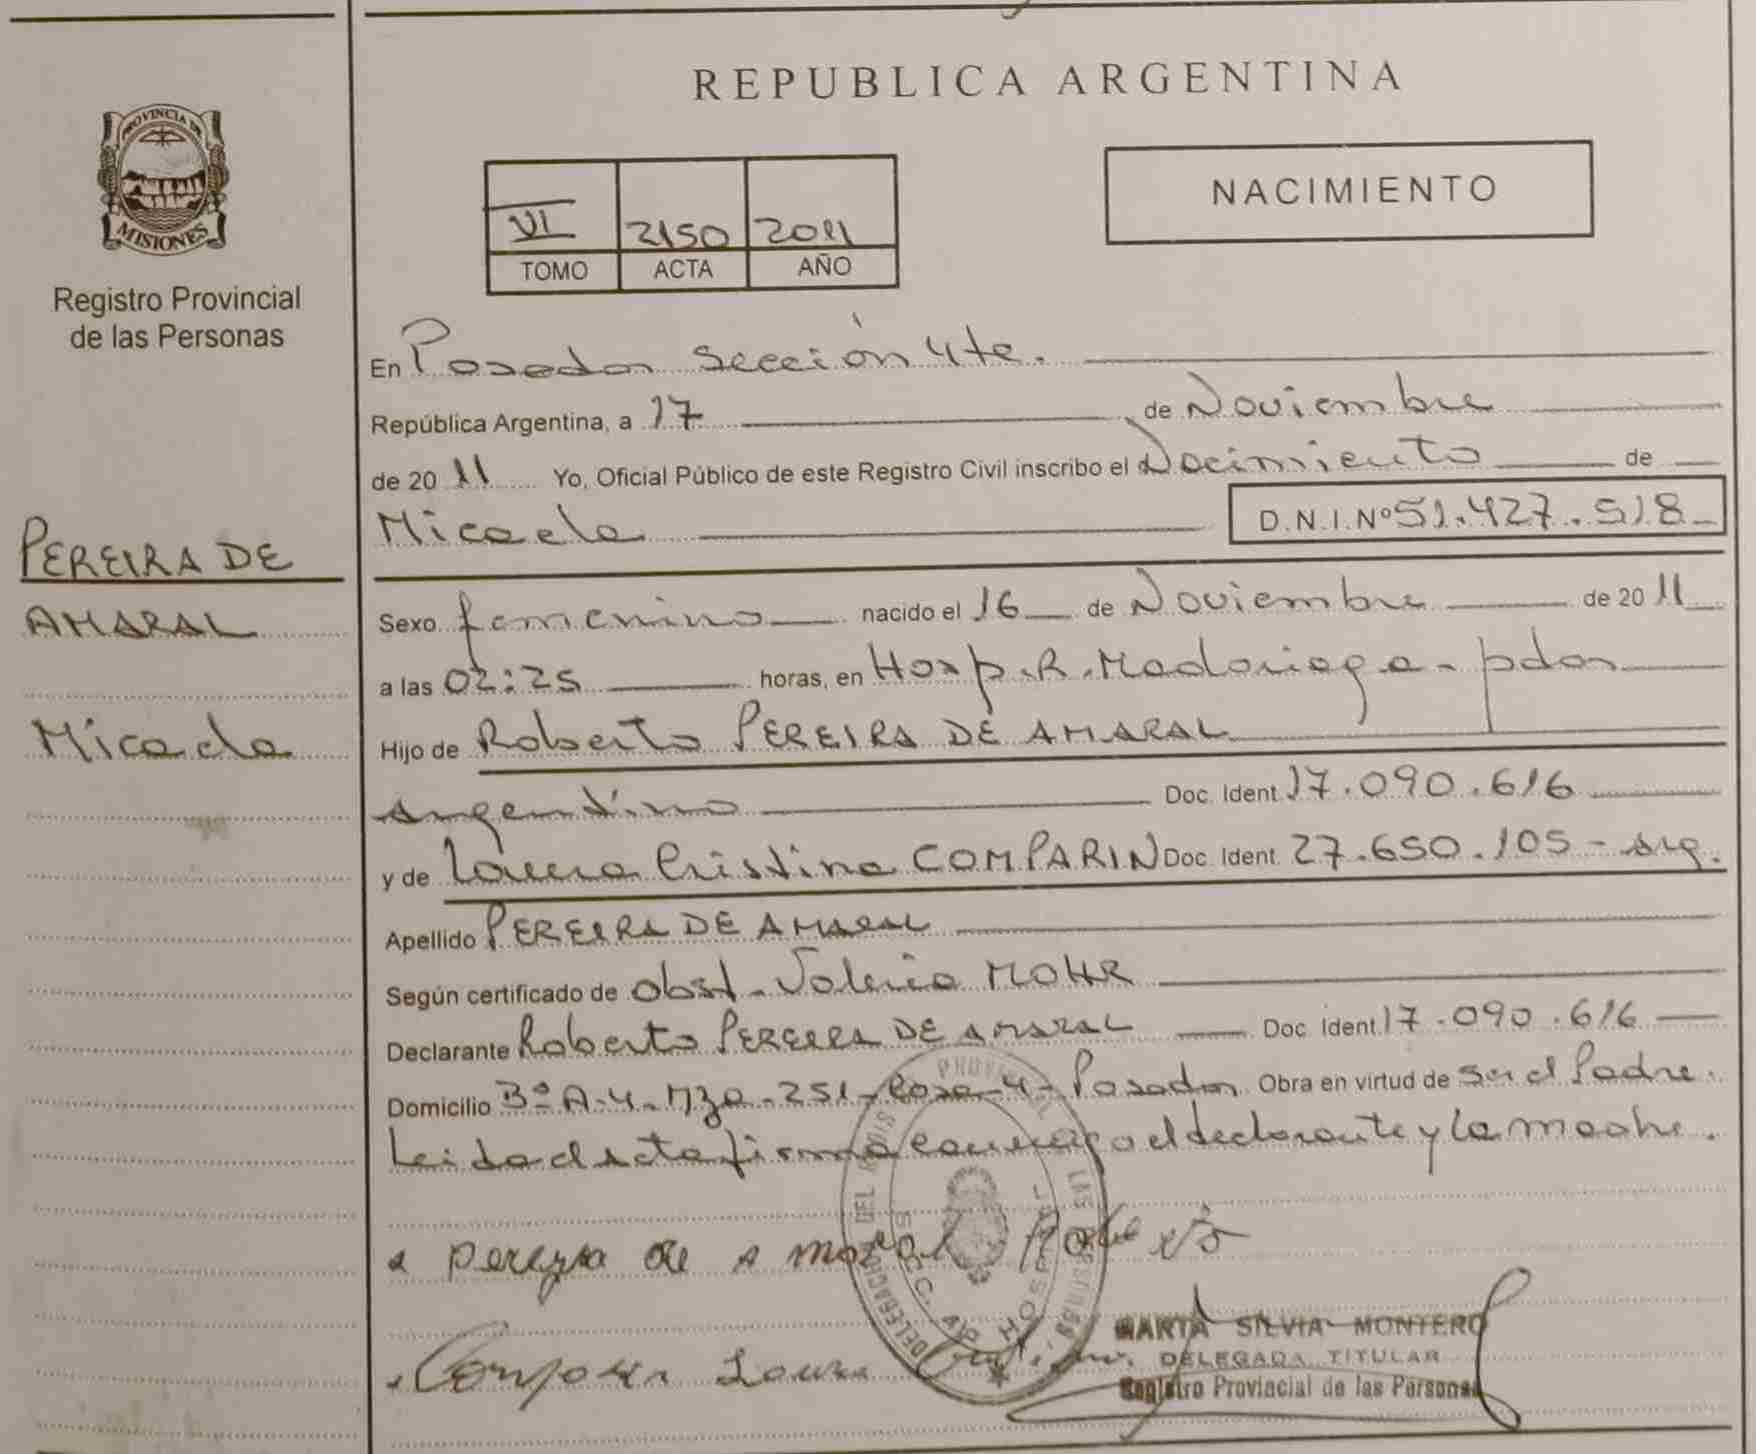 REPUBLICA ARGENTINA
PROVINCIA DE
MISIONES
Registro Provincial
de las Personas
NACIMIENTO
VI 2150 2011
TOMO ACTA AÑO
En Posadas Sección 4te.
República Argentina, a 17 de Noviembre
de 2011 Yo, Oficial Público de este Registro Civil inscribo el Nacimiento de
Micaela D.N.I.Nº 51.427.518
PEREIRA DE
AMARAL
Micaela
Sexo femenino nacido el 16 de Noviembre de 2011
a las 02:25 horas, en Hosp. R. Madariaga - pdas
Hijo de Roberto PEREIRA DE AMARAL
argentino Doc. Ident. 17.090.616
y de Laura Cristina COMPARIN Doc. Ident. 27.650.105 - arg.
Apellido PEREIRA DE AMARAL
Según certificado de obst. Valeria MOHR
Declarante Roberto PEREIRA DE AMARAL Doc. Ident. 17.090.616
Domicilio Bº A-4 - Mza - 251 - Casa - 4 - Posadas Obra en virtud de ser el Padre.
Leida el acta firma conmigo el declarante y la madre.
Pereyra de Amaral Roberto
Comparin Laura Cristina
MARTA SILVIA MONTERO
DELEGADA TITULAR
Registro Provincial de las Personas